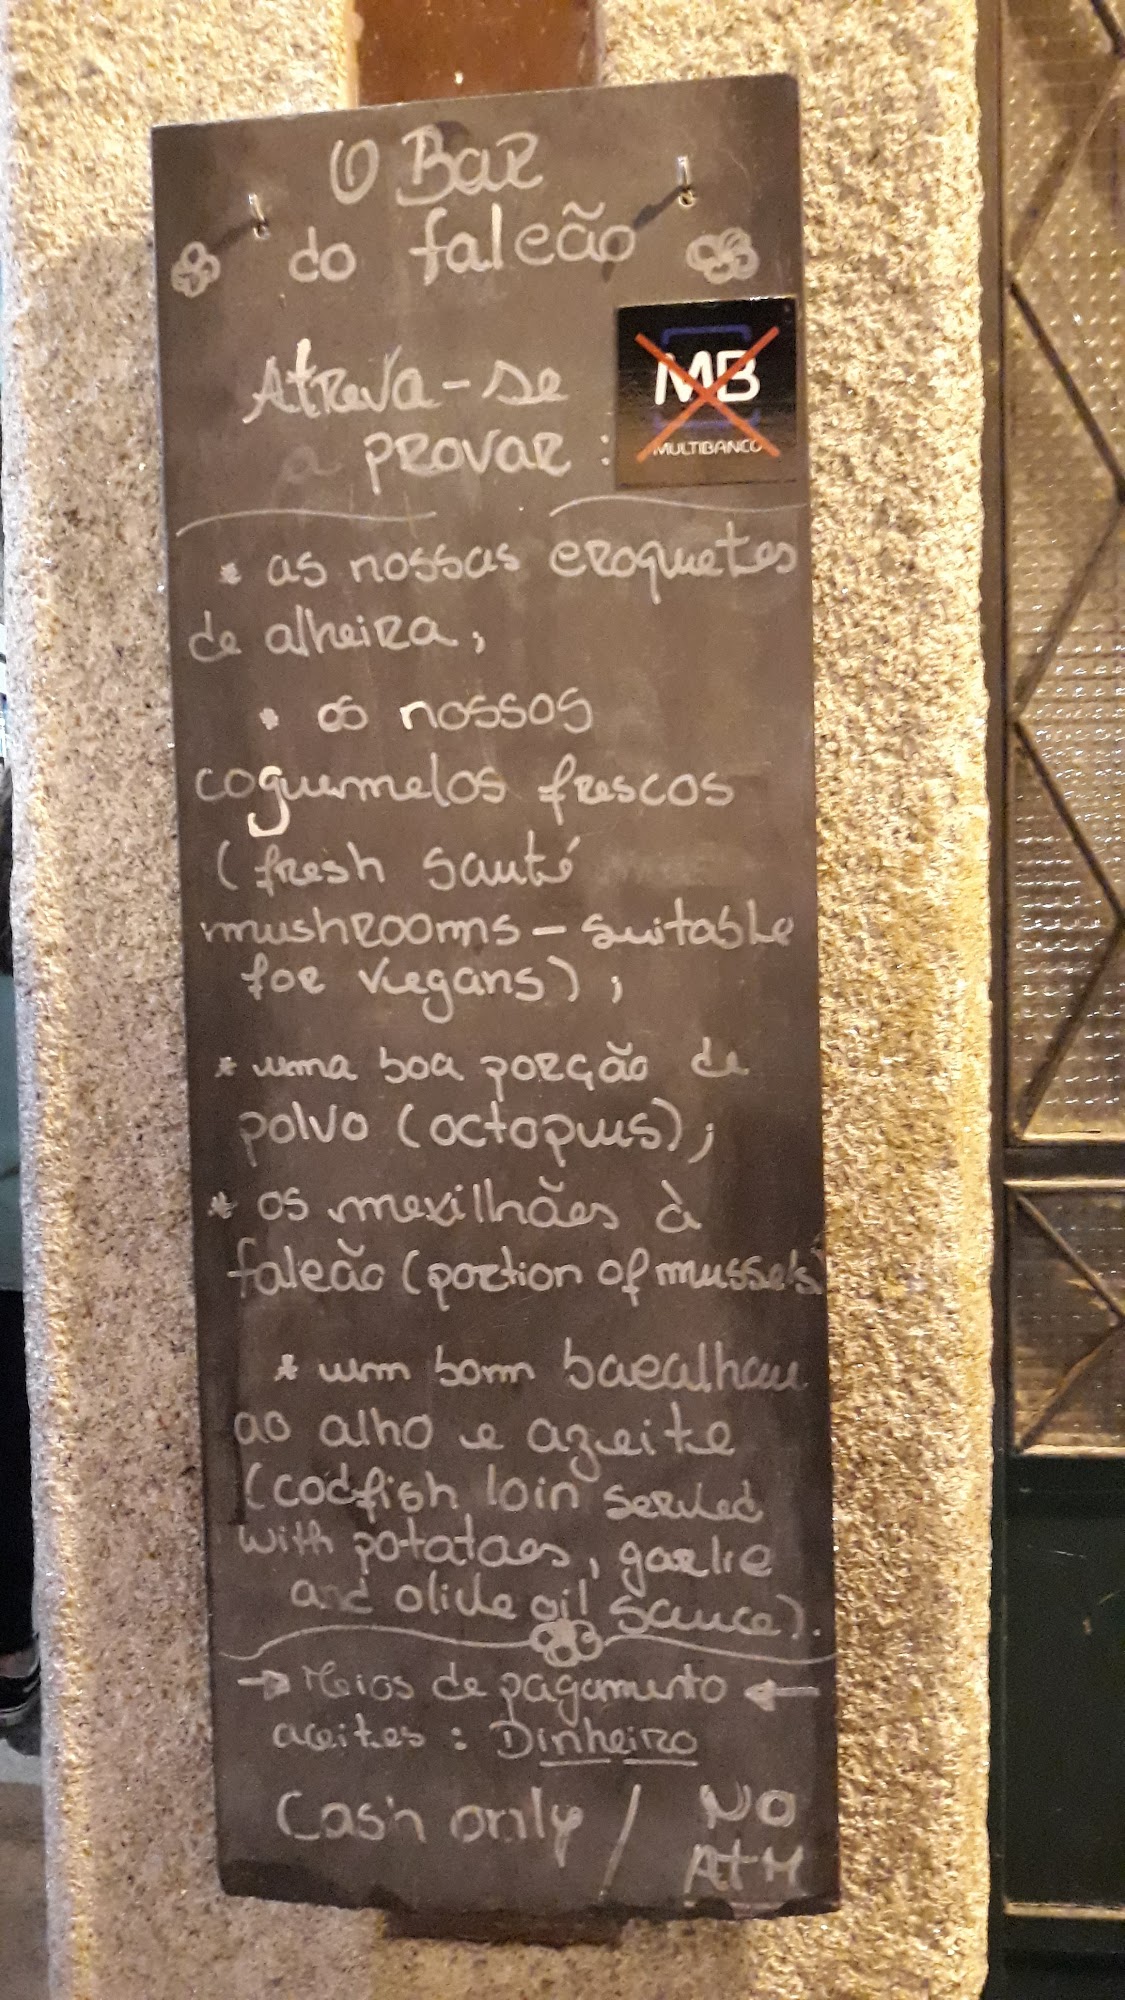 O Bar
do falcão
Atreva-se
a provar:
MB
MULTIBANCO
* as nossas croquetes
de alheira;
* os nossos
cogumelos frescos
(fresh sauté
mushrooms - suitable
for vegans);
* uma boa porção de
polvo (octopus);
* os mexilhões à
falcão (portion of mussels)
* um bom bacalhau
ao alho e azeite
(codfish loin served
with potatoes, garlic
and olive oil sauce).
→ Meios de pagamento ←
aceites: Dinheiro
Cash only / NO
ATM